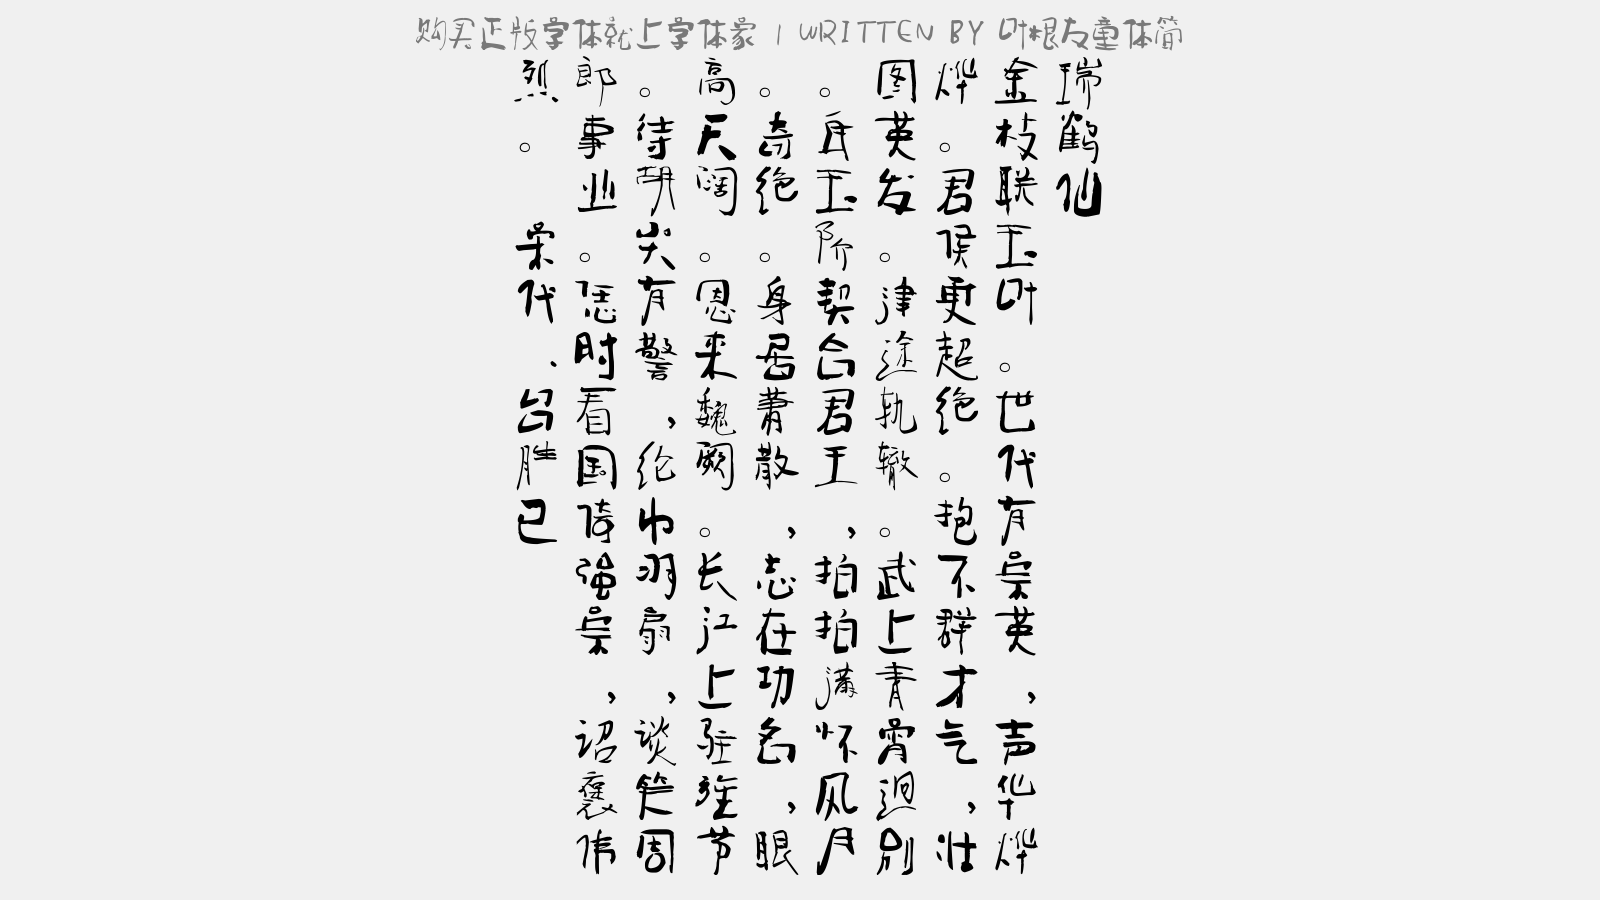 购买正版字体就上字体家 | WRITTEN BY 叶根友童体简
瑞鹤仙
金枝联玉叶。世代有宗英,声华烨
烨。君侯更超绝。抱不群才气,壮
图英发。津途轨辙。武上青霄迥别
。玉阶契合君王,拍拍满怀风月
。奇绝。身居萧散,志在功名,眼
高天阔。恩来魏阙。长江上驻旌节
。待胡尖有警,纶巾羽扇,谈笑周
郎事业。恁时看国倚强宗,诏褒伟
烈。 宋代.吕胜己